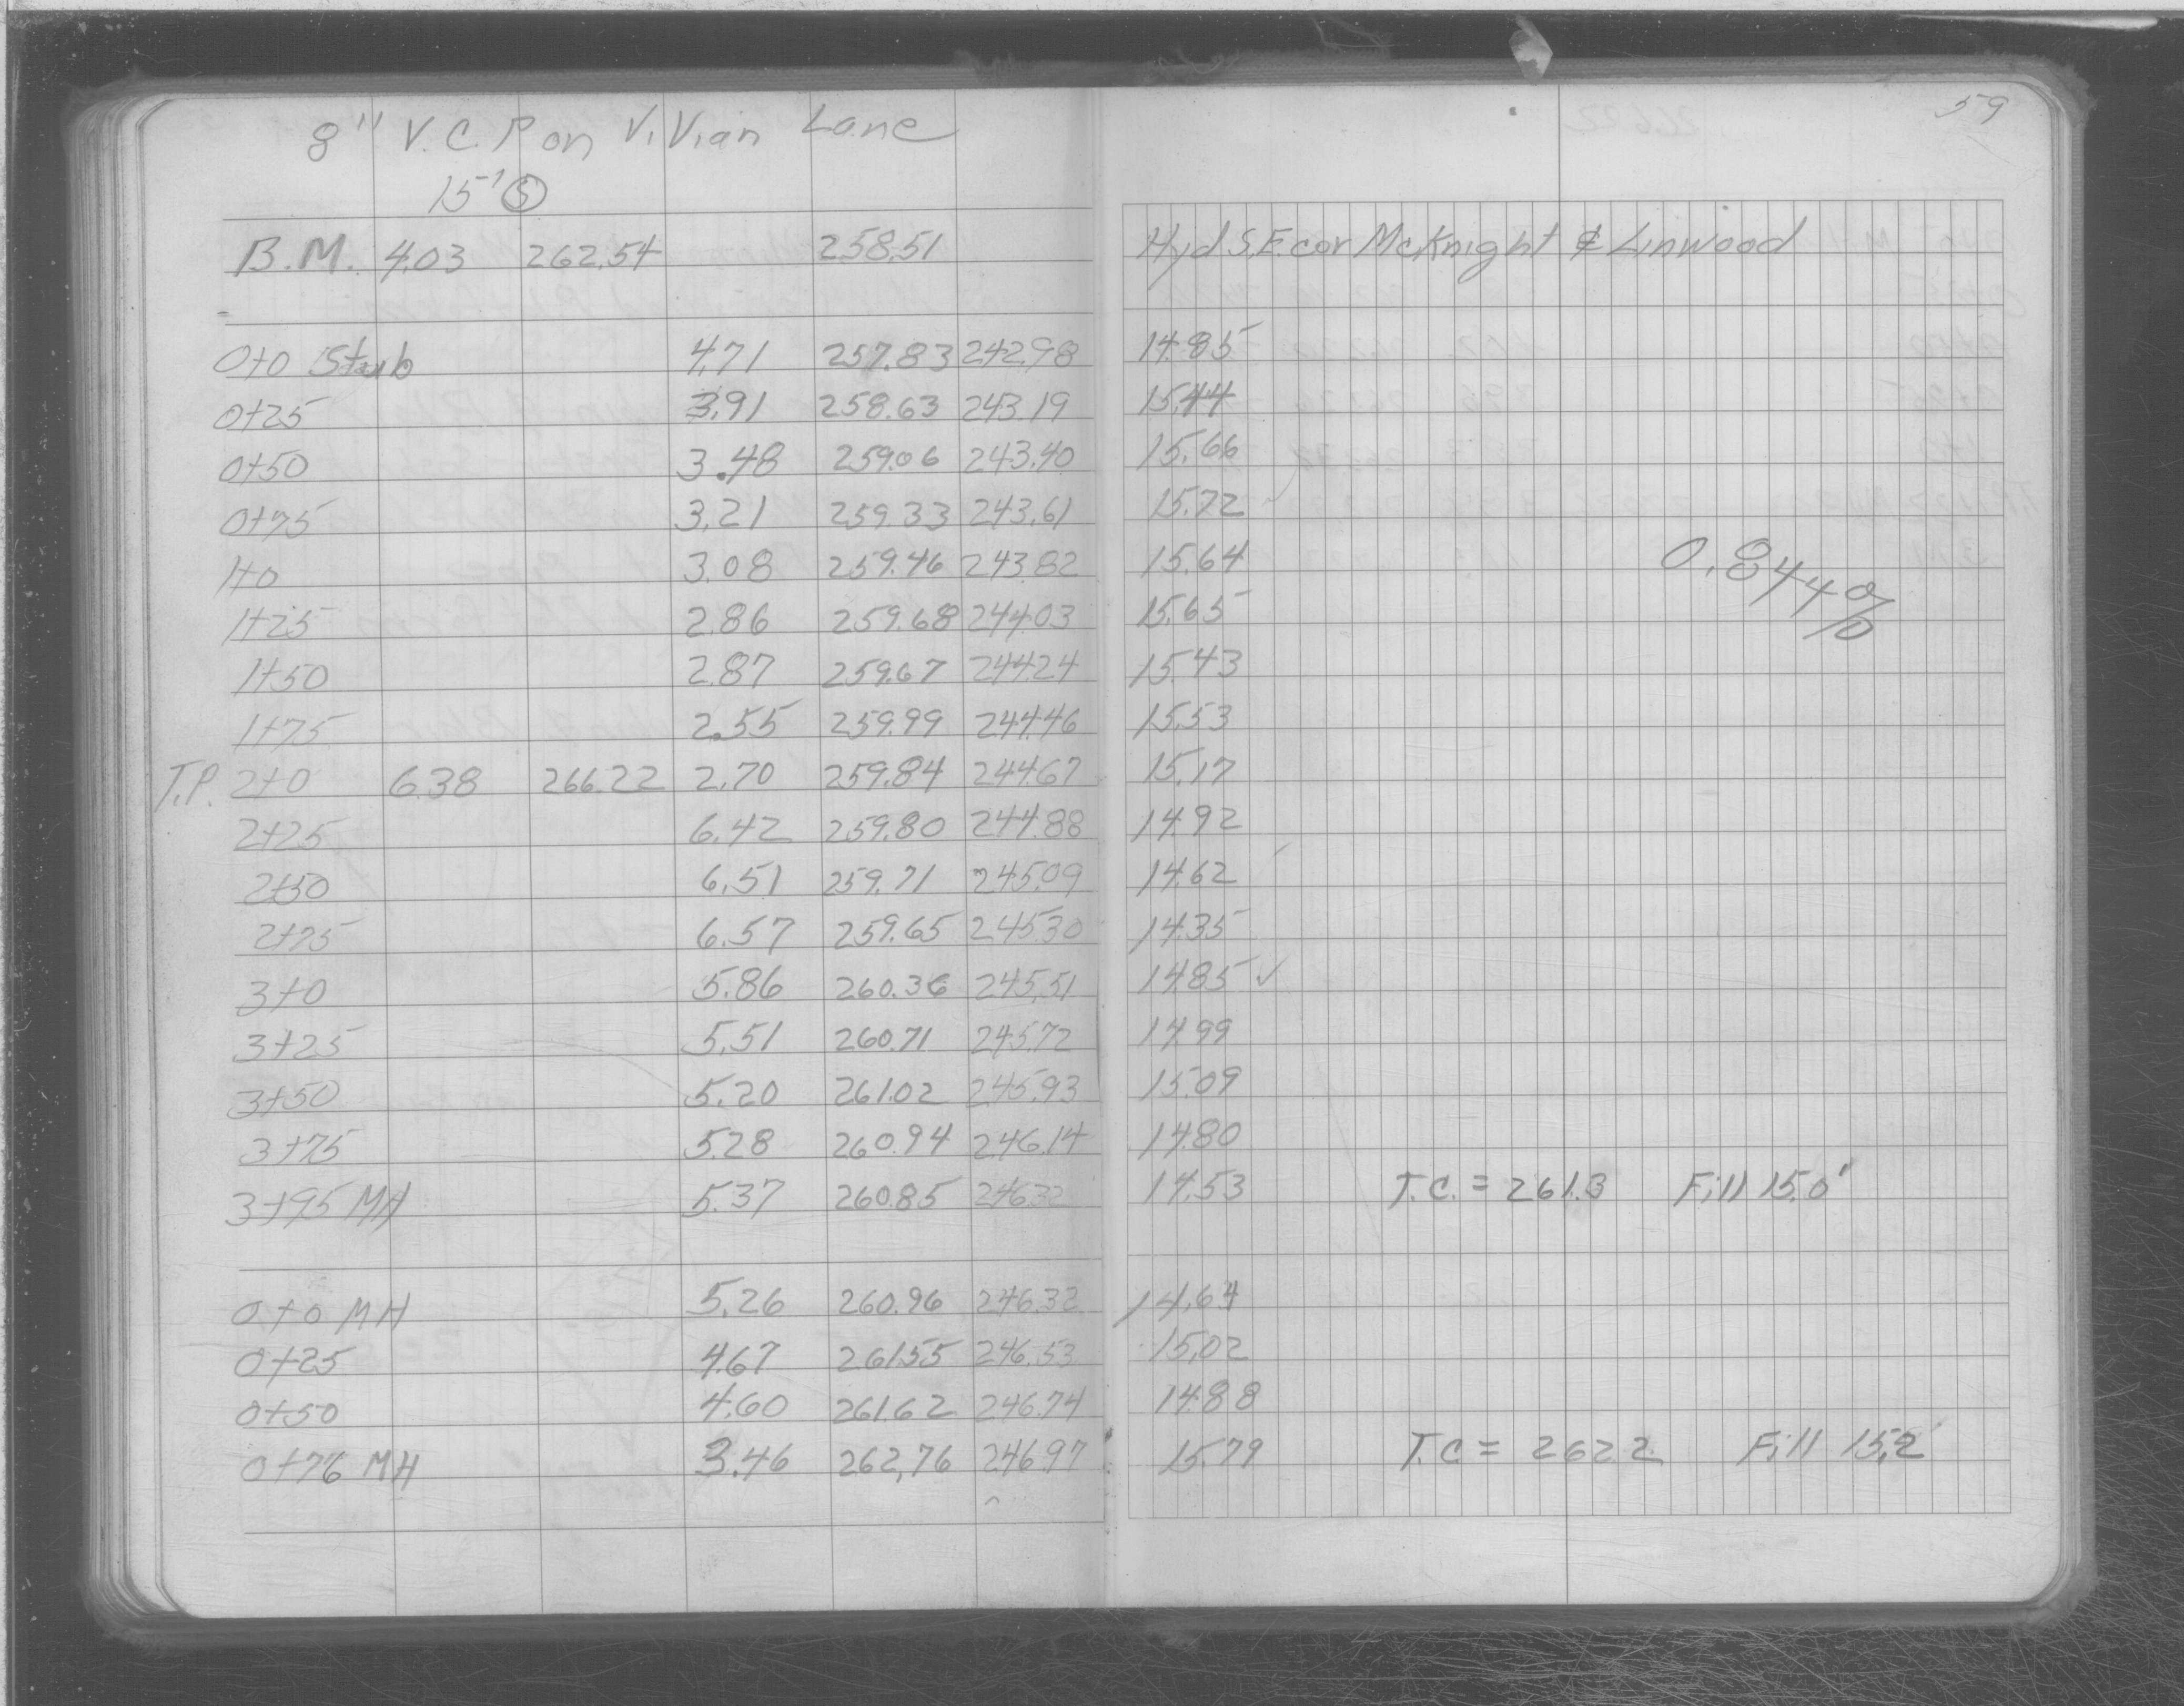 59
8" V.C.P on Vivian Lane
15' S
B.M. 4.03 262.54 258.51 Hyd S.E. cor McKnight & Linwood
0+0 Stub 4.71 257.83 242.98 14.85
0+25 3.91 258.63 243.19 15.44
0+50 3.48 259.06 243.40 15.66
0+75 3.21 259.33 243.61 15.72 ✓
1+0 3.08 259.46 243.82 15.64
0.844%
1+25 2.86 259.68 244.03 15.65
1+50 2.87 259.67 244.24 15.43
1+75 2.55 259.99 244.46 15.53
T.P. 2+0 6.38 266.22 2.70 259.84 244.67 15.17
2+25 6.42 259.80 244.88 14.92
2+50 6.51 259.71 245.09 14.62
2+75 6.57 259.65 245.30 14.35
3+0 5.86 260.36 245.51 14.85 ✓
3+25 5.51 260.71 245.72 14.99
3+50 5.20 261.02 245.93 15.09
3+75 5.28 260.94 246.14 14.80
3+95 MH 5.37 260.85 246.32 14.53 T.C. = 261.3 Fill 15.0'
0+0 MH 5.26 260.96 246.32 14.64
0+25 4.67 261.55 246.53 15.02
0+50 4.60 261.62 246.74 14.88
0+76 MH 3.46 262.76 246.97 15.79 T.C = 262.2 Fill 15.2'